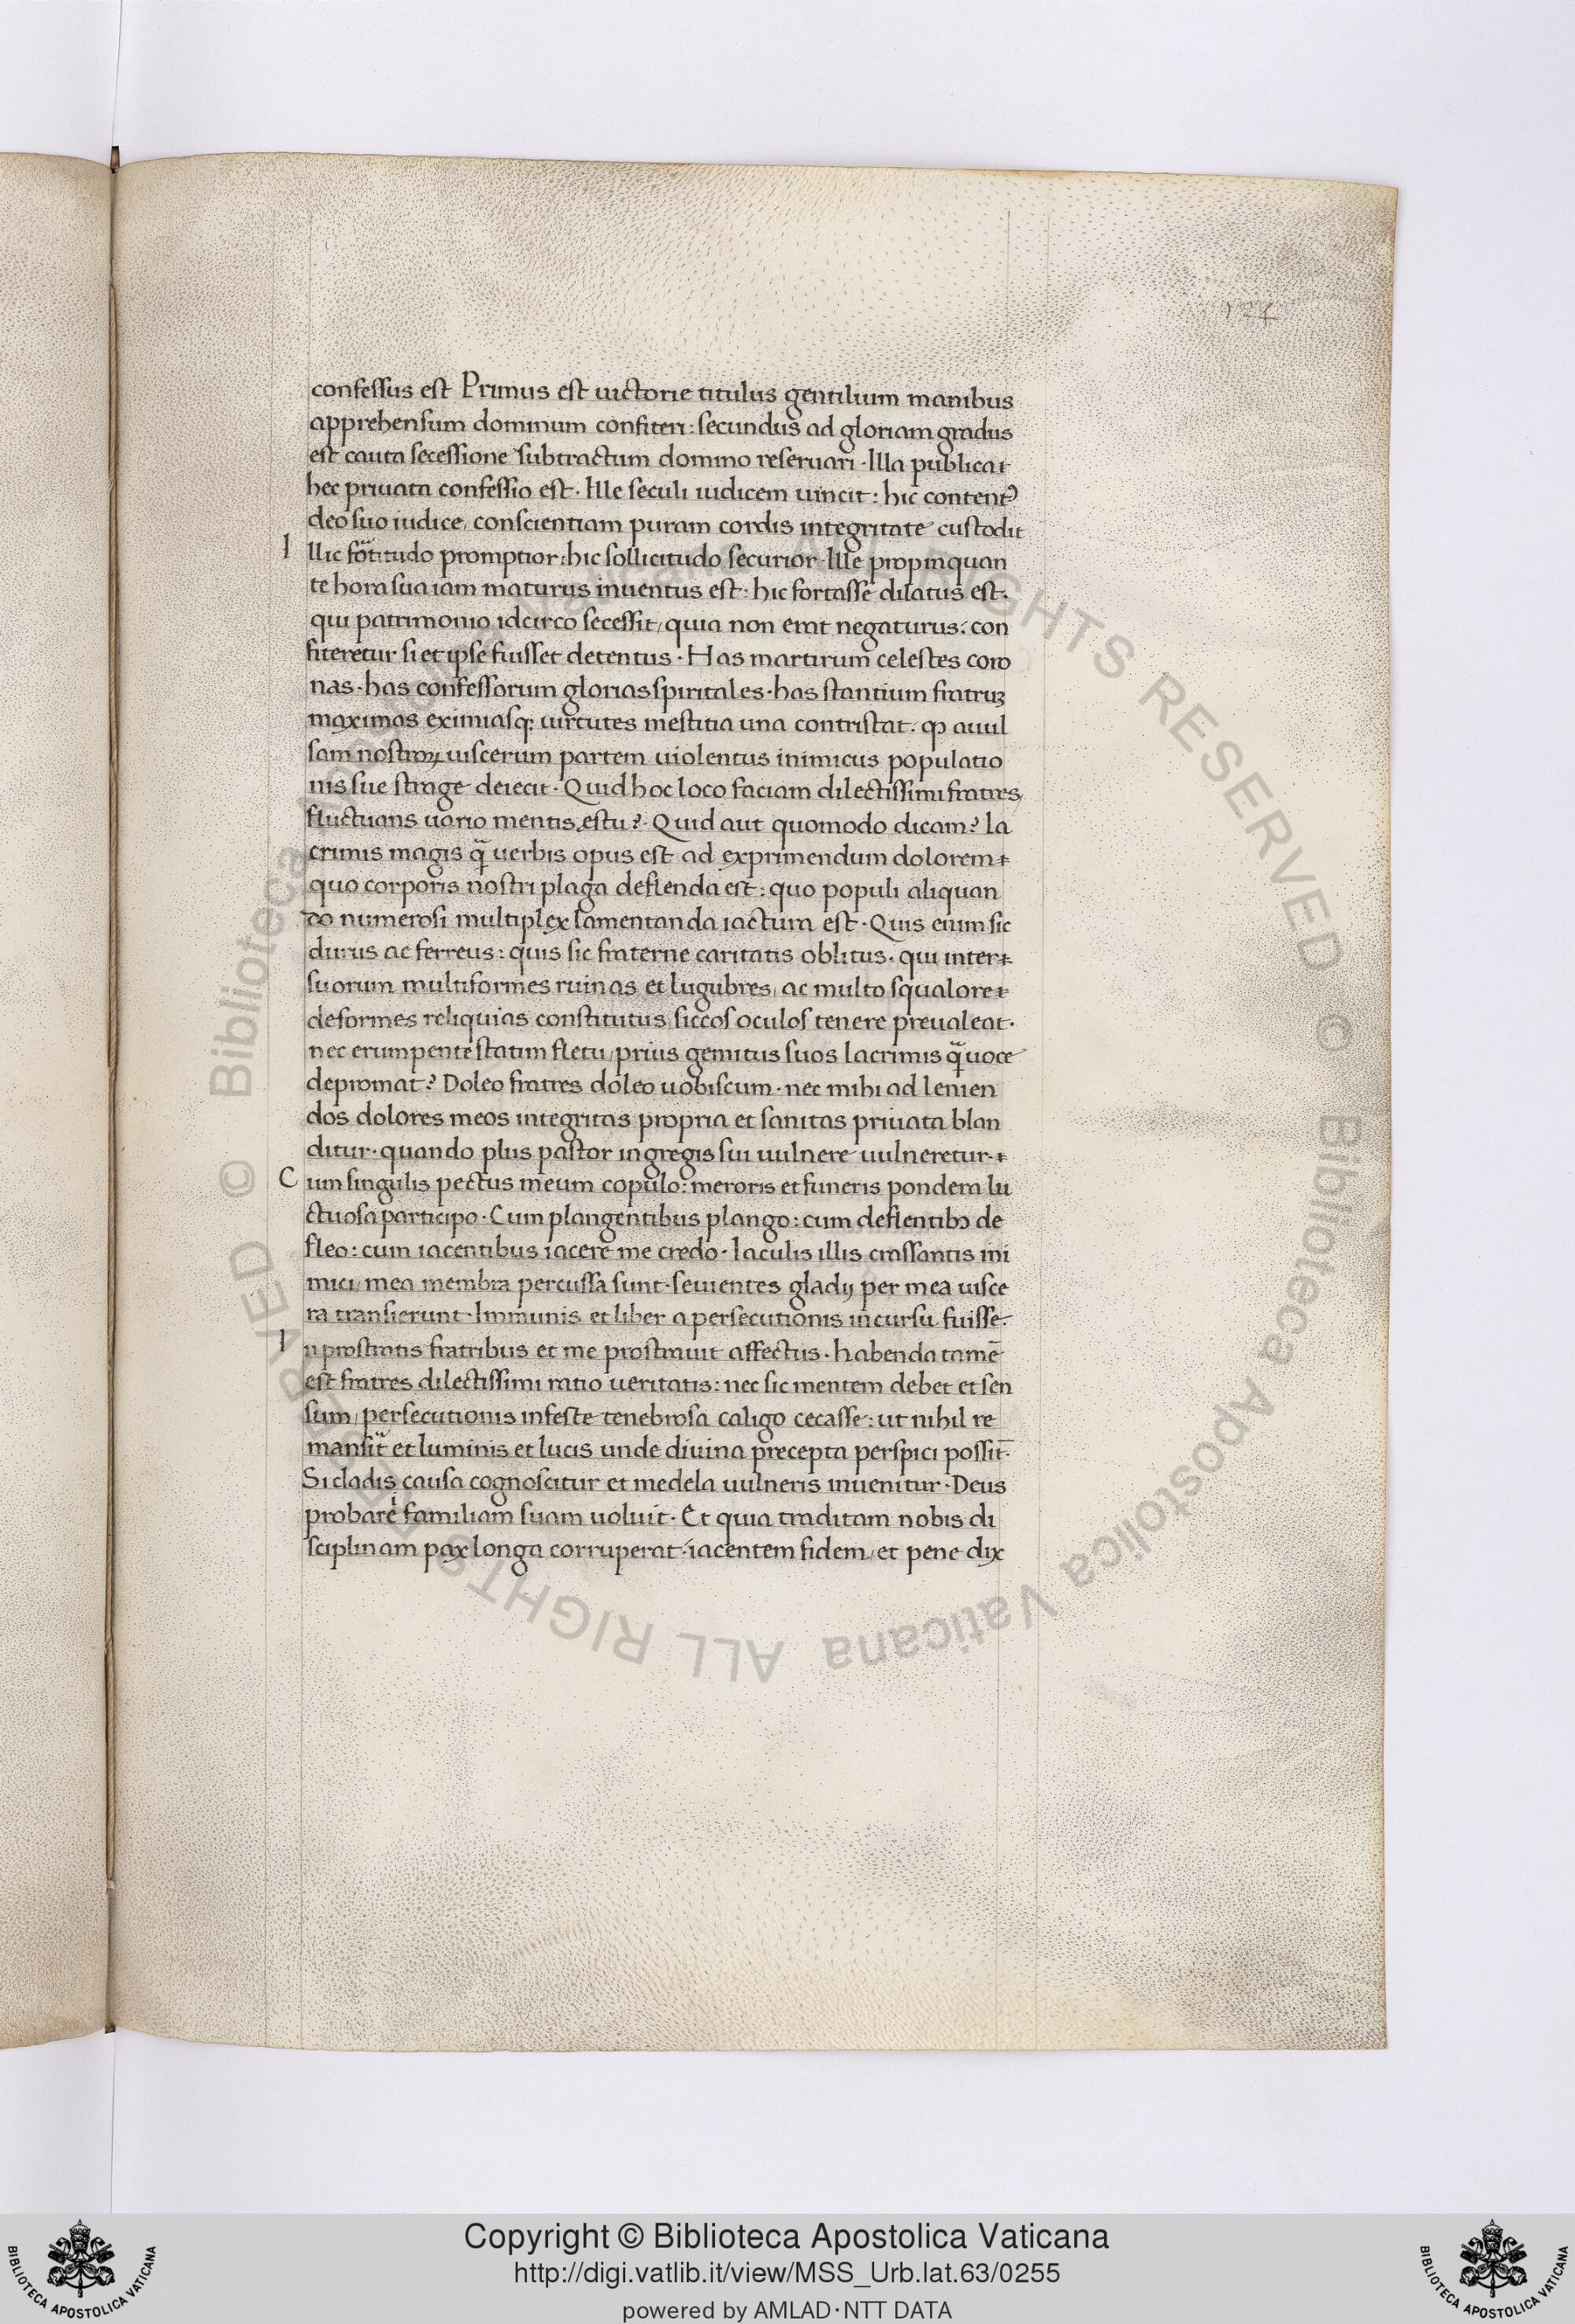 127
confessus est Primus est uictorie titulus gentilium manibus
apprehensum dominum confiteri: secundus ad gloriam gradus
est cauta secessione subtractum domino reseruari · Illa publicat
hec priuata confessio est · Ille seculi iudicem uincit: hic contentꝰ
deo suo iudice, conscientiam puram cordis integritate custodit
Illic fortitudo promptior: hic sollicitudo securior · Ille propinquan
te hora sua iam maturus inuentus est: hic fortasse dilatus est.
qui patrimonio idcirco secessit, quia non erat negaturus: con
fiteretur si et ipse fuisset detentus · Has martirum celestes coro
nas · has confessorum glorias spiritales · has stantium fratruꝫ
maximas eximiasq; uirtutes mestitia una contristat. ꝙ auul
sam nostroꝝ uiscerum partem uiolentus inimicus populatio
nis sue strage deiecit · Quid hoc loco faciam dilectissimi fratres,
fluctuans uario mentis estu? · Quid aut quomodo dicam? la
crimis magis q̃ uerbis opus est ad exprimendum dolorem
quo corporis nostri plaga deflenda est: quo populi aliquan
do numerosi multiplex lamentanda iactura est · Quis enim sic
durus ac ferreus: quis sic fraterne caritatis oblitus · qui inter
suorum multiformes ruinas et lugubres, ac multo squalore
deformes reliquias constitutus, siccos oculos tenere preualeat ·
nec erumpente statim fletu, prius gemitus suos lacrimis q̃ uoce
depromat? Doleo fratres doleo uobiscum · nec mihi ad lenien
dos dolores meos integritas propria et sanitas priuata blan
ditur · quando plus pastor in gregis sui uulnere uulneretur ·
Cum singulis pectus meum copulo: meroris et funeris pondera lu
ctuosa participo · Cum plangentibus plango: cum deflentibꝫ de
fleo: cum iacentibus iacere me credo · Iaculis illis crassantis ini
mici, mea membra percussa sunt · seuientes gladij per mea uisce
ra transierunt · Immunis et liber a persecutionis incursu fuisse.
In prostratis fratribus et me prostrauit affectus · habenda tamē
est fratres dilectissimi ratio ueritatis: nec sic mentem debet et sen
sum, persecutionis infeste tenebrosa caligo cecasse: ut nihil re
mansit̃ et luminis et lucis unde diuina precepta perspici possit̄.
Si cladis causa cognoscitur et medela uulneris inuenitur · Deus
probare familiam suam uoluit · Et quia traditam nobis di
sciplinam pax longa corruperat · iacentem fidem, et pene dix
© Biblioteca Apostolica Vaticana ALL RIGHTS RESERVED
© Biblioteca Apostolica Vaticana ALL RIGHTS RESERVED
BIBLIOTECA APOSTOLICA VATICANA
Copyright © Biblioteca Apostolica Vaticana
http://digi.vatlib.it/view/MSS_Urb.lat.63/0255
powered by AMLAD·NTT DATA
BIBLIOTECA APOSTOLICA VATICANA